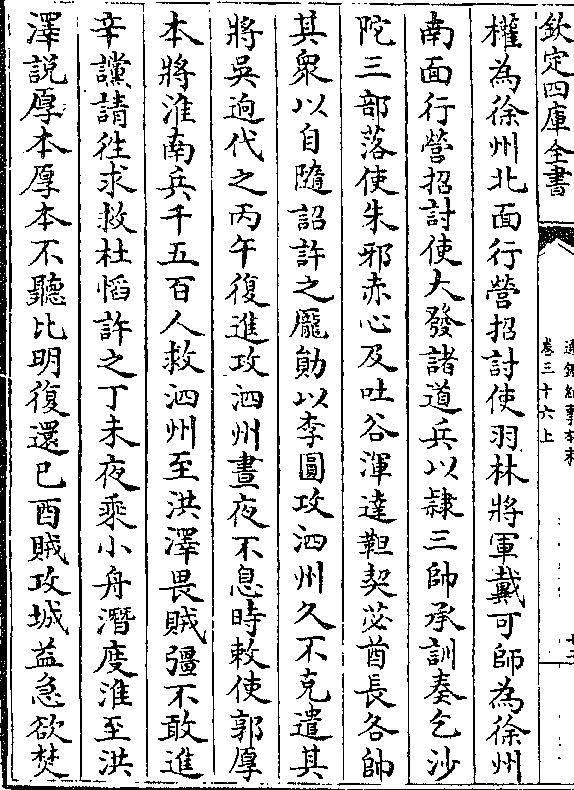 欽定四庫全書
通鑑紀事本末
卷三十六上
權為徐州北面行營招討使羽林將軍戴可師為徐州
南面行營招討使大發諸道兵以隷三帥承訓奏乞沙
陀三部落使朱邪赤心及吐谷渾達靼契苾酋長各帥
其衆以自隨詔許之龎勛以李圓攻泗州久不克遣其
將吳迥代之丙午復進攻泗州晝夜不息時敕使郭厚
本將淮南兵千五百人救泗州至洪澤畏賊彊不敢進
辛讜請往求救杜慆許之丁未夜乘小舟潛度淮至洪
澤說厚本厚本不聽比明復還已酉賊攻城益急欲焚